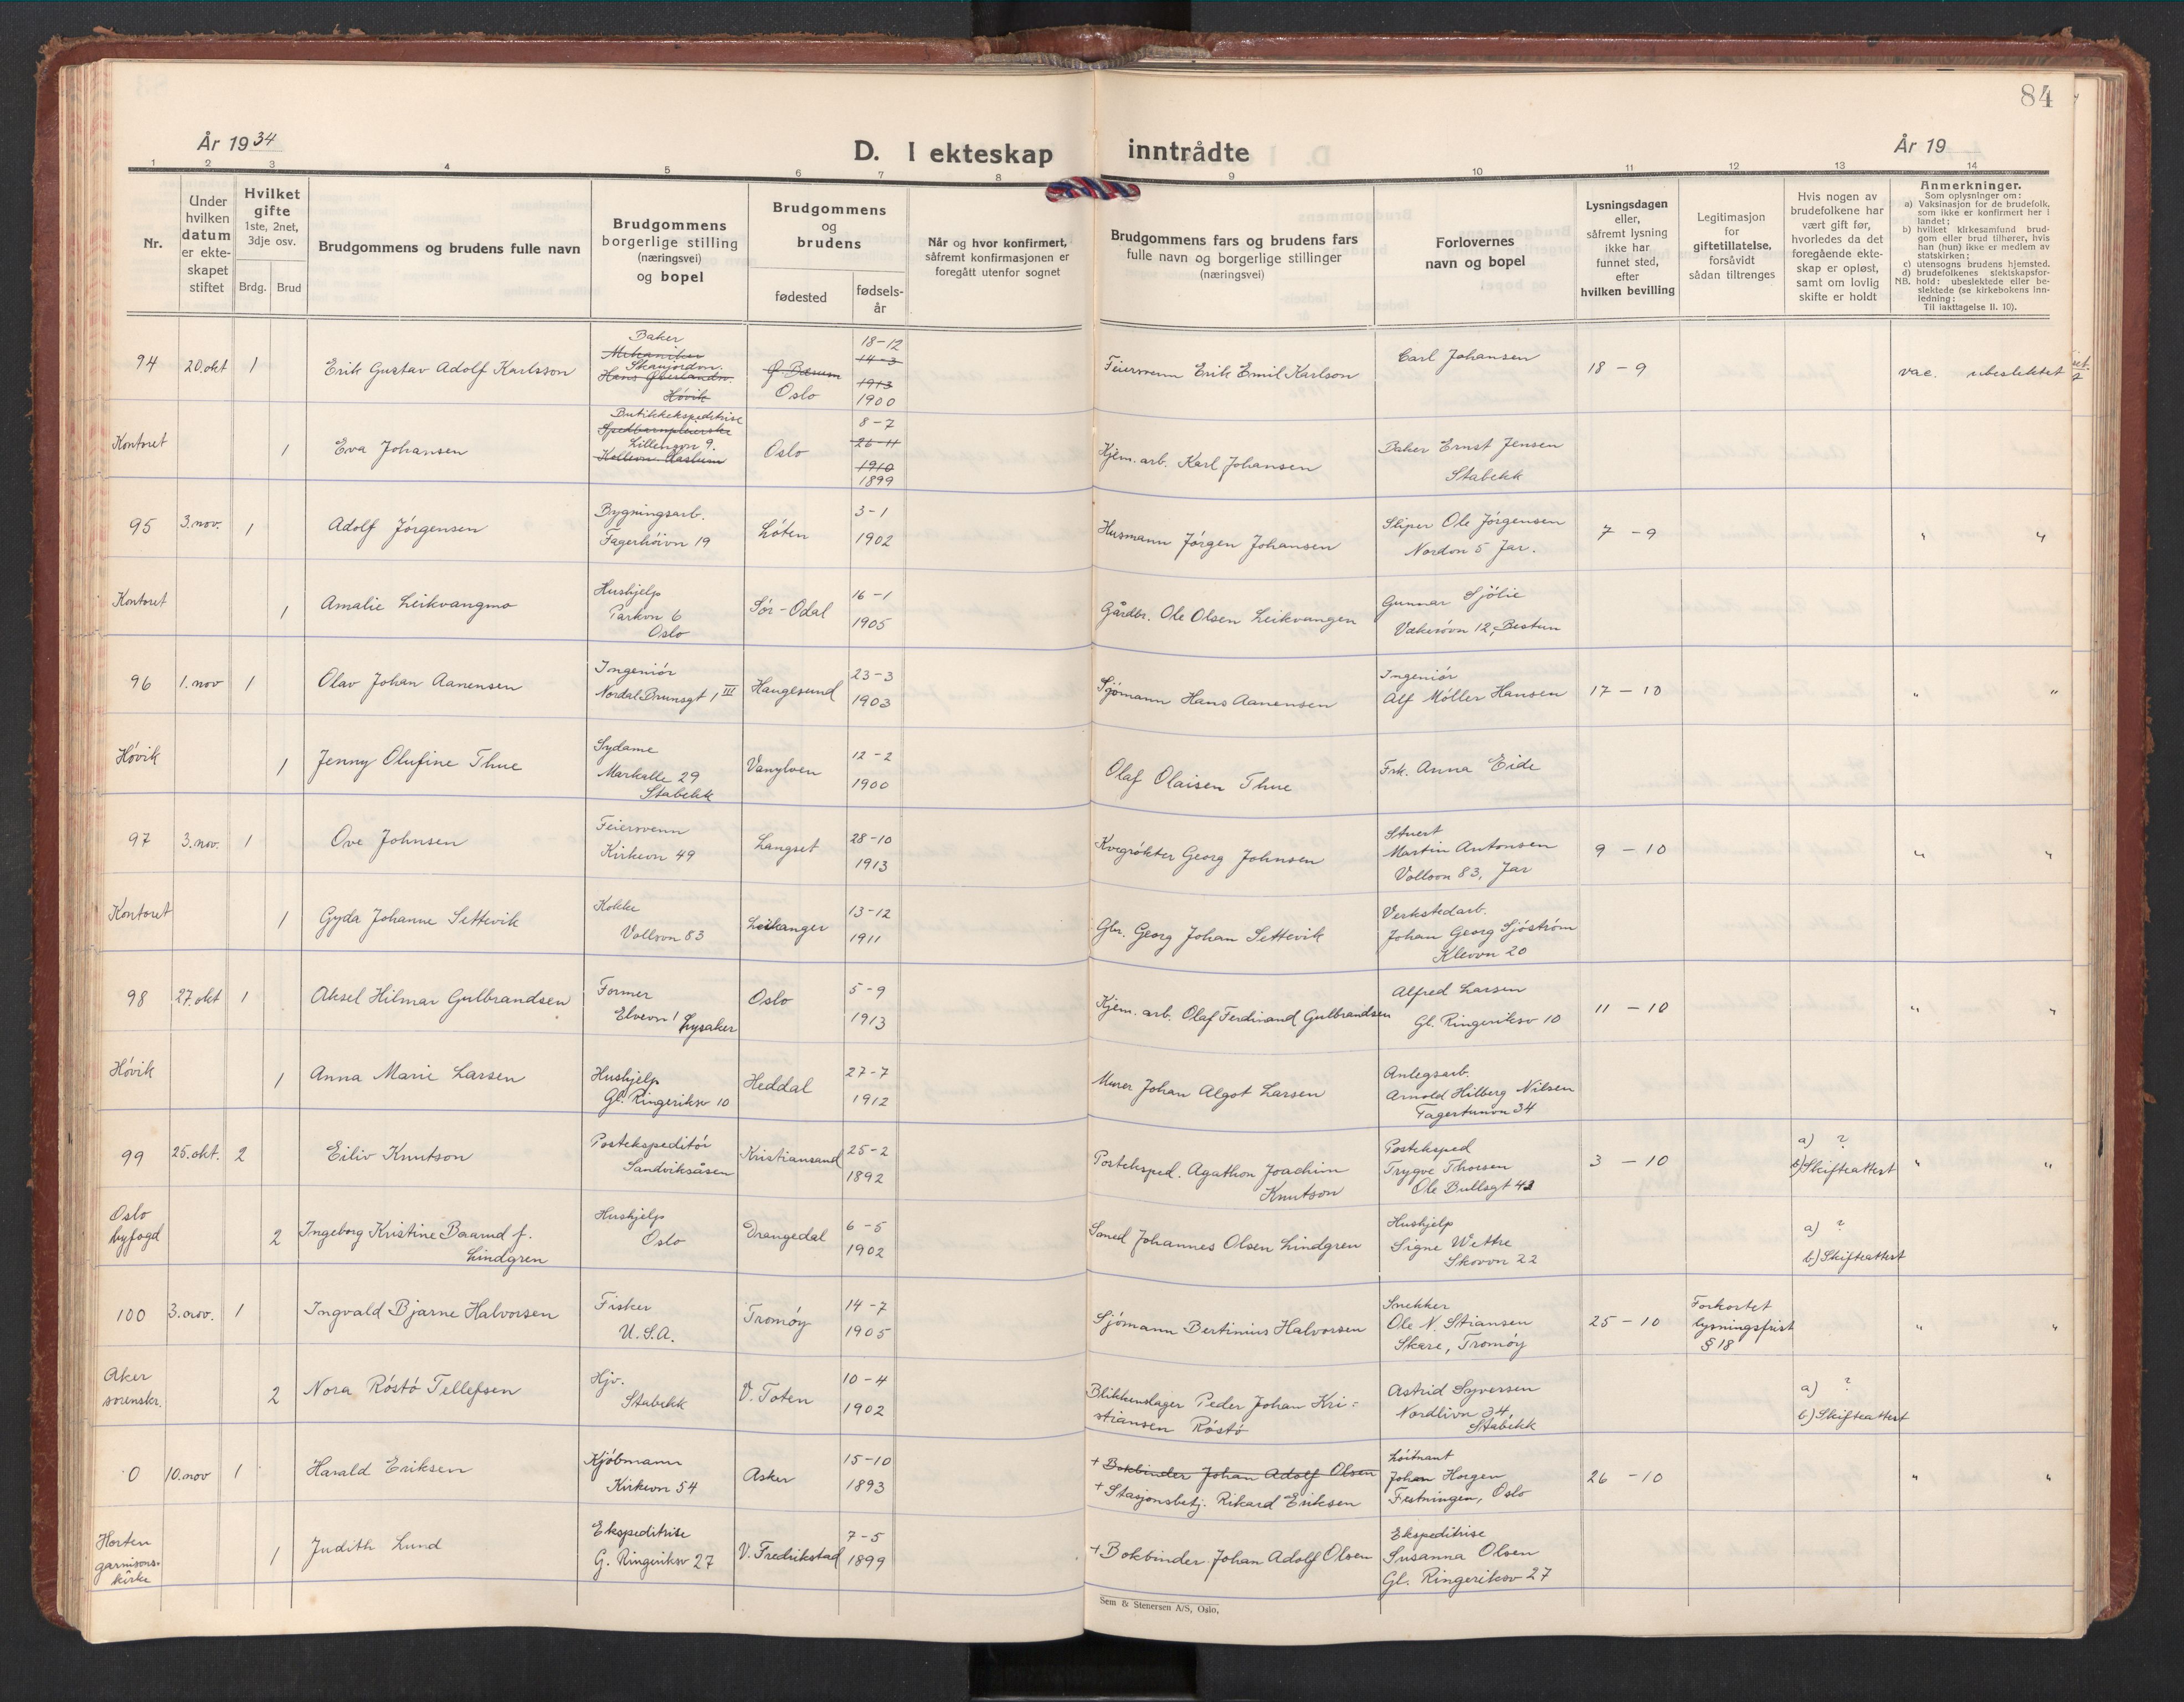 84
År 1934
D. I ekteskap inntrådte
År 19
1 2 3 4 5 6 7 8 9 10 11 12 13 14
Nr.
Under hvilken datum er ekte-skapet stiftet
Hvilket gifte 1ste, 2net, 3dje osv.
Brdg. Brud
Brudgommens og brudens fulle navn
Brudgommens borgerlige stilling (næringsvei) og bopel
Brudgommens og brudens
fødested
fødsels-år
Når og hvor konfirmert, såfremt konfirmasjonen er foregått utenfor sognet
Brudgommens fars og brudens fars fulle navn og borgerlige stillinger (næringsvei)
Forlovernes navn og bopel
Lysningsdagen eller, såfremt lysning ikke har funnet sted, efter hvilken bevilling
Legitimasjon for giftetillatelse, forsåvidt sådan tiltrenges
Hvis nogen av brudefolkene har vært gift før, hvorledes da det foregående ekte-skap er opløst, samt om lovlig skifte er holdt
Anmerkninger.
Som oplysninger om:
a) Vaksinasjon for de brudefolk, som ikke er konfirmert her i landet;
b) hvilket kirkesamfund brud-gom eller brud tilhører, hvis han (hun) ikke er medlem av statskirken;
c) utensogns brudens hjemsted.
d) brudefolkenes slektskapsfor-hold: ubeslektede eller be-slektede (se kirkebokens inn-ledning:
NB. Til iakttagelse II. 10).
94 20.okt 1 Erik Gustav Adolf Karlsson
Baker
Mekaniker
Hans Øverlandv.
Høvik
Ø. Bærum
Oslo
18-12
14-3
1913
1900
Feiersvenn Erik Emil Karlson
Carl Johansen
18 - 9
vac. ubeslektet
Kontoret 1 Eva Johansen
Butikkekspeditrise
Spedbarnpleierske
Lillengvn 9.
Haslum
Oslo
8-7
26-11
1910
1899
Kjem. arb. Karl Johansen
Baker Ernst Jensen
Stabekk
95 3.nov. 1 Adolf Jørgensen
Bygningsarb.
Fagerhøivn 19
Løten
3-1
1902
Husmann Jørgen Johansen
Sliper Ole Jørgensen
Nordvn 5 Jar.
7 - 9
" "
Kontoret 1 Amalie Leikvangmo
Hushjelp
Parkvn 6
Oslo
Sør-Odal
16-1
1905
Gårdbr. Ole Olsen Leikvangen
Gunnar Sjölie
Vækerövn 12, Bestun
96 1.nov 1 Olav Johan Aanensen
Ingeniør
Nordal Brunsgt 1 III
Haugesund
23-3
1903
Sjømann Hans Aanensen
Ingeniør
Alf Møller Hansen
17 - 10
" "
Høvik 1 Jenny Olufine Thue
Sydame
Markalle 29
Stabekk
Vanylven
12-2
1900
Olaf Olaisen Thue
Frk. Anna Eide
97 3.nov. 1 Ove Johnsen
Feiersvenn
Kirkevn 49
Langset
28-10
1913
Kvegrøkter Georg Johnsen
Stuert
Martin Antonsen
Vollsvn 83, Jar
9 - 10
" "
Kontoret 1 Gyda Johanne Settevik
Kokke
Vollsvn 83
Leikanger
13-12
1911
Gbr. Georg Johan Settevik
Verkstedarb.
Johan Georg Sjöström
Klevvn 20
98 27.okt 1 Aksel Hilmar Gulbrandsen
Former
Elvevn 1 Lysaker
Oslo
5-9
1913
Kjem. arb. Olaf Ferdinand Gulbrandsen
Alfred Larsen
Gl. Ringeriksv 10
11 - 10
" "
Høvik 1 Anna Marie Larsen
Hushjelp
Gl. Ringeriksv 10
Heddal
27-7
1912
Murer Johan Algot Larsen
Anlegsarb.
Arnold Hilberg Nilsen
Fagertunvn 34
99 25.okt. 2 Eiliv Knutson
Postekspeditør
Sandviksåsen
Kristiansand
25-2
1892
Posteksped. Agathon Joachim
Knutson
Posteksped
Trygve Thorsen
Ole Bullsgt 43
3 - 10
a) ?
b) Skifteattest
" "
Oslo
byfogd
2 Ingeborg Kristine Baarud f.
Lindgren
Hushjelp
Oslo
Drangedal
6-5
1902
Smed Johannes Olsen Lindgren
Hushjelp
Signe Wettre
Skovvn 22
a) ?
b) Skifteattest
100 3.nov. 1 Ingvald Bjarne Halvorsen
Fisker
U.S.A.
Tromøy
14-7
1905
Sjømann Bertinius Halvorsen
Snekker
Ole N. Stiansen
Skare, Tromøy
25 - 10
Forkortet
lysningsfrist
§ 18
" "
Aker
sorenskr.
2 Nora Røstø Tellefsen
Hjv.
Stabekk
V. Toten
10-4
1902
Blikkenslager Peder Johan Kri=
stiansen Røstø
Astrid Syversen
Nordlivn 34,
Stabekk
a) ?
b) Skifteattest
0 10.nov 1 Harald Eriksen
Kjøbmann
Kirkevn 54
Asker
15-10
1893
+ Bokbinder Johan Adolf Olsen
+ Stasjonsbetj. Rikard Eriksen
Løitnant
Johan Horgen
Festningen, Oslo
26 - 10
" "
Horten
garnisons-
kirke
1 Judith Lund
Ekspeditrise
G. Ringeriksv 27
V. Fredrikstad
7-5
1899
+ Bokbinder Johan Adolf Olsen
Ekspeditrise
Susanna Olsen
Gl. Ringeriksv 27
Sem & Stenersen A/S, Oslo.